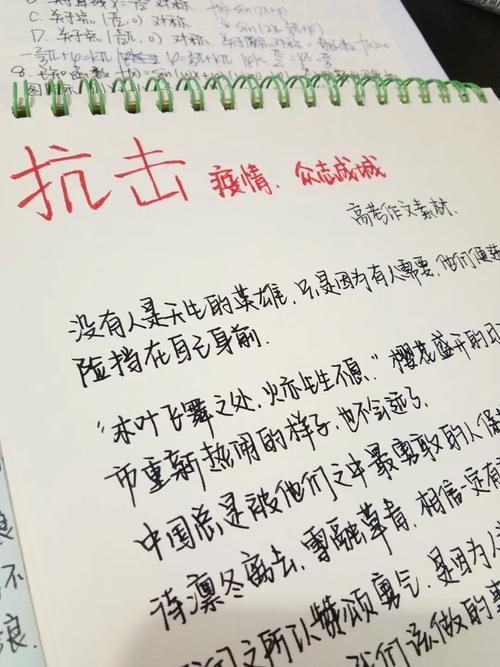 C. 关于点(
D. 关于点(
抗击疫情、众志成城
高考作文素材.
没有人是天生的英雄,只是因为有人需要,他们便
险挡在自己身前.
“木叶飞舞之处,火亦生生不息.”樱花盛开的
市重新热闹的样子,也不会远了.
中国总是被他们之中最勇敢的人保
待凛冬离去,雪融草青,相信一定有
们之所以赞颂勇气,是因为人
们该做的事